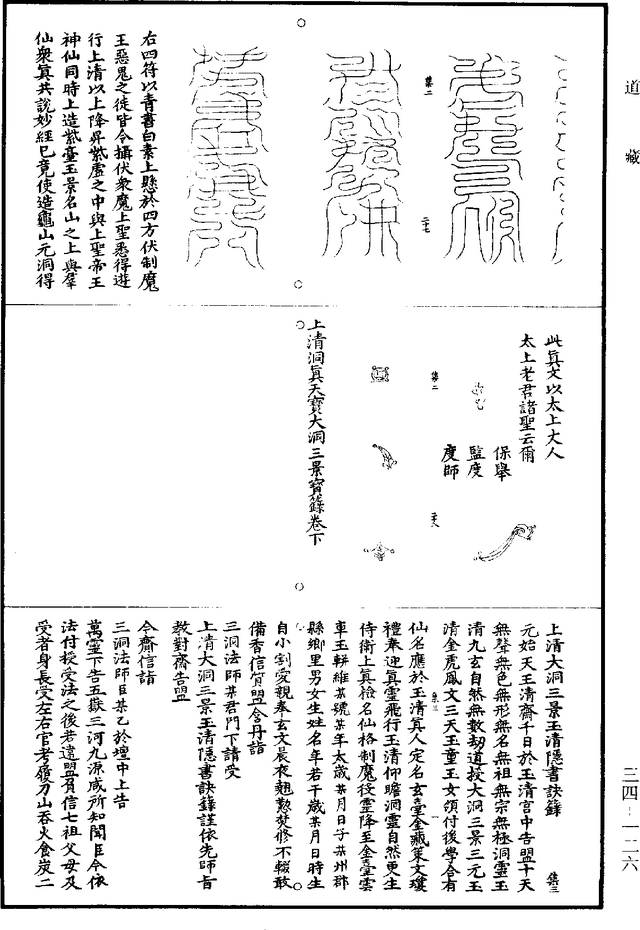 道藏
集二
二十七
右四符以青書白素上懸於四方伏制魔
王惡鬼之徒皆令攝伏衆魔上聖悉得遊
行上清以上降昇紫虛之中與上聖帝王
神仙同時上造紫臺玉景名山之上與羣
仙衆眞共說妙經已竟使造龜山元洞得
此眞文以太上丈人
太上老君諸聖云爾
保舉
監度
度師
集二
上清洞眞天寶大洞三景寶籙卷下
上清大洞三景玉清隱書訣籙
集三
元始天王清齋千日於玉清宮中告盟十天
無聲無色無形無名無祖無宗無極洞靈玉
清九玄自然無數劫道授大洞三景三元玉
清金虎鳳文三天玉童玉女領付後學合有
仙名應於玉清眞人定名玄臺金藏策文瓊
禮奉迎眞靈飛行玉清仰瞻洞靈自然更生
侍衛上眞檢名仙格制魔役靈降至金臺雲
車玉輧維某號某年太歲某月日子某州郡
縣鄉里男女生姓名年若干歲某月日時生
自小割愛親奉玄文晨夜翹懃焚修不輟敢
備香信質盟含丹詣
三洞法師某君門下請受
上清大洞三景玉清隱書訣籙謹依先師旨
教對齋告盟
今齋信詣
三洞法師臣某乙於壇中上告
萬靈下告五嶽三河九源咸所知聞臣今依
法付授受法之後若違盟負信七祖父母及
受者身長受左右官考履刀山吞火食炭二
三四-一二六